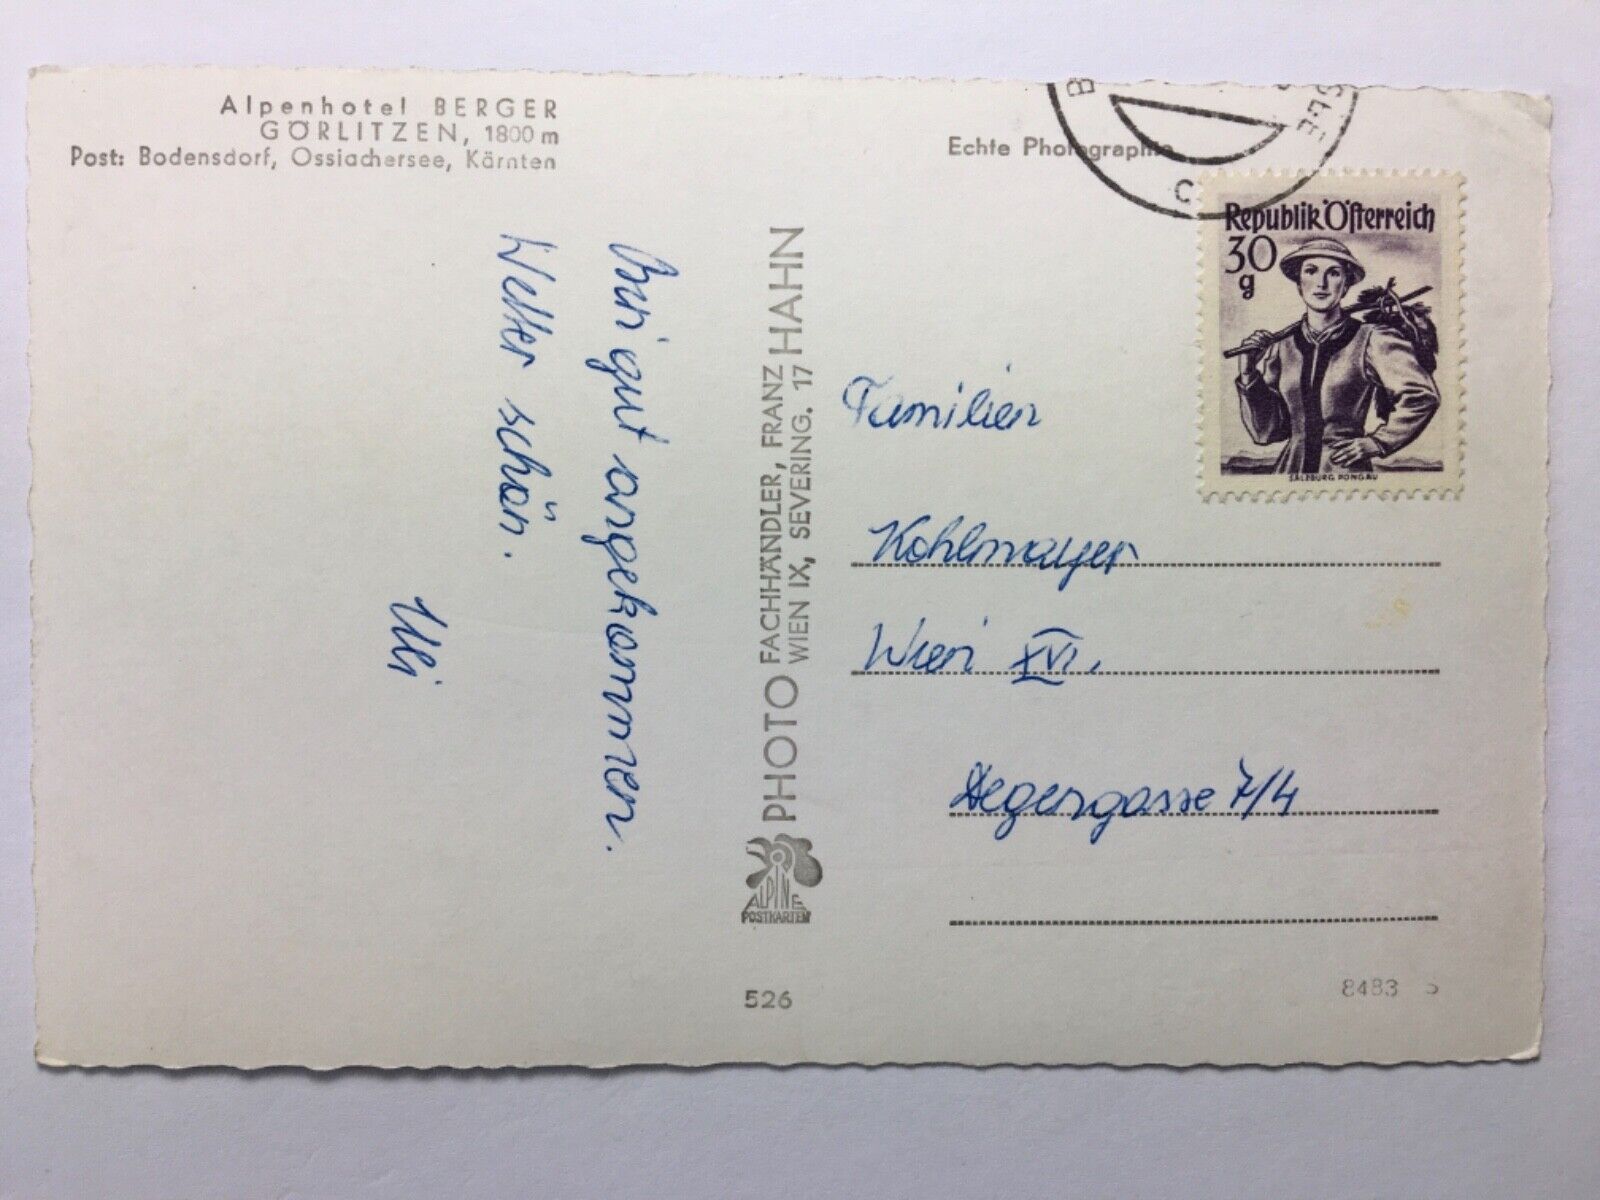 Alpenhotel BERGER
GÖRLITZEN, 1800 m
Post: Bodensdorf, Ossiachersee, Kärnten
Bin gut angekommen.
Wetter schön.
Uli
PHOTO FACHHÄNDLER, FRANZ HAHN
WIEN IX, SEVERING. 17
ALPINE
POSTKARTEN
526
Echte Photographie
C
Republik Österreich
30
g
SALZBURG, PONGAU
Familien
Kohlmayer
Wien XVI.
Degengasse 7/4
8483 S